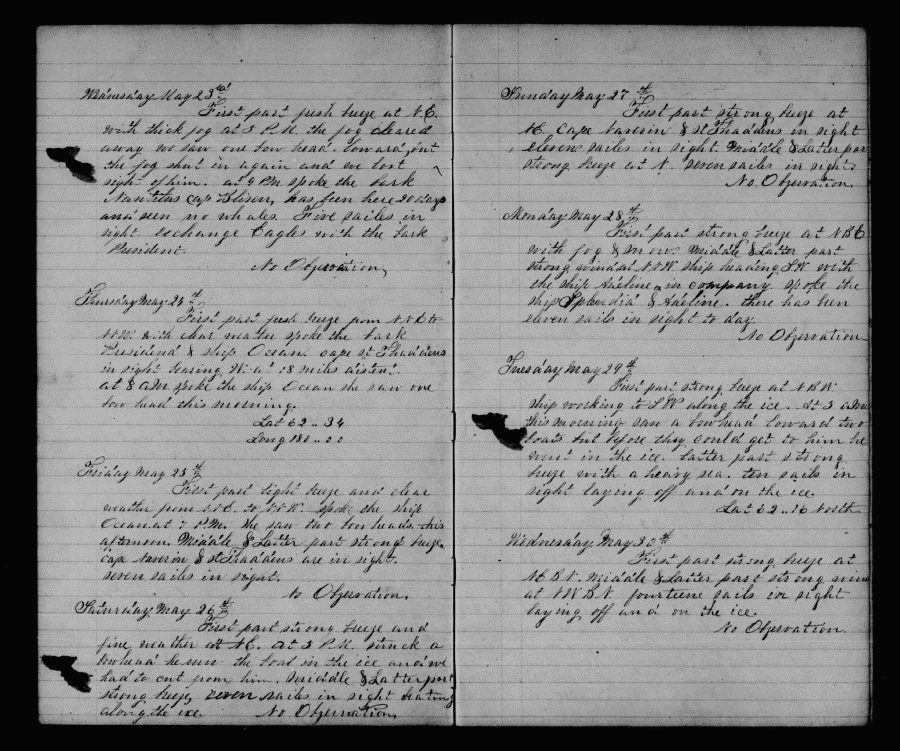 Wednesday May 23rd
First part fresh breeze at N.E.
with thick fog at 3 P.M. the fog cleared
away we saw one bow head. loward but
the fog shut in again and we lost
sight of him. at 9 P.M. spoke the bark
cap has been here 20 days
and seen no whales. Five sailes in
sight exchange Eagles with the bark
President.
No Observation,
Thursday May 24th
First part fresh breeze from N.N.E to
N.N.W. with clear weather spoke the bark
President & ship Ocean. cape St Thaddens
in sight bearing W. at 18 miles distent.
at 8 A.M. spoke the ship Ocean she saw one
bow head this morning.
Lat 62 .. 34
Long 180 .. 00
Friday May 25th
First part light breeze and clear
weather from N.E. to N.W. spoke the ship
Ocean at 7 P.M. He saw two bow heads this
afternoon. Middle & Latter part strong breeze.
Cape Naverin & St Thaddens are in sight.
seven sailes in sight.
No Observation.
Saturday May 26th
First part strong breeze and
fine weather at N.E. at 3 P.M. struck a
bowhead he run the boat in the ice and we
had to cut from him. Middle & Latter part
strong breeze, seven sailes in sight beating
along the ice. No Observation,
Sunday May 27th
First part strong breeze at
N.E. Cape Naverin & St Thaddens in sight
eleven sailes in sight. Middle & Latter par
strong breeze at N. seven sailes in sight.
No Observation.
Monday May 28th
First part strong breeze at N B E
with fog & snow. Middle & Latter part
strong wind at N.N.W. ship heading S.W. with
the ship Adeline in company. spoke the
ship Splendid & Adeline. there has been
eleven sails in sight to day
No Observation
Tuesday May 29th
First part strong breeze at N.B.W.
ship working to S.W along the ice. At 3 A.M.
this morning saw a bowhead loward two
boats but before they could get to him he
went in the ice. Latter part strong
breeze with a heavy sea. ten sails in
sight laying off and on the ice.
Lat 62 .. 16 North
Wednesday May 30th
First part strong breeze at
N.B.N. Middle & Latter part strong wind
at N W B N fourteene sails in sight
laying off and on the ice.
No Observation.